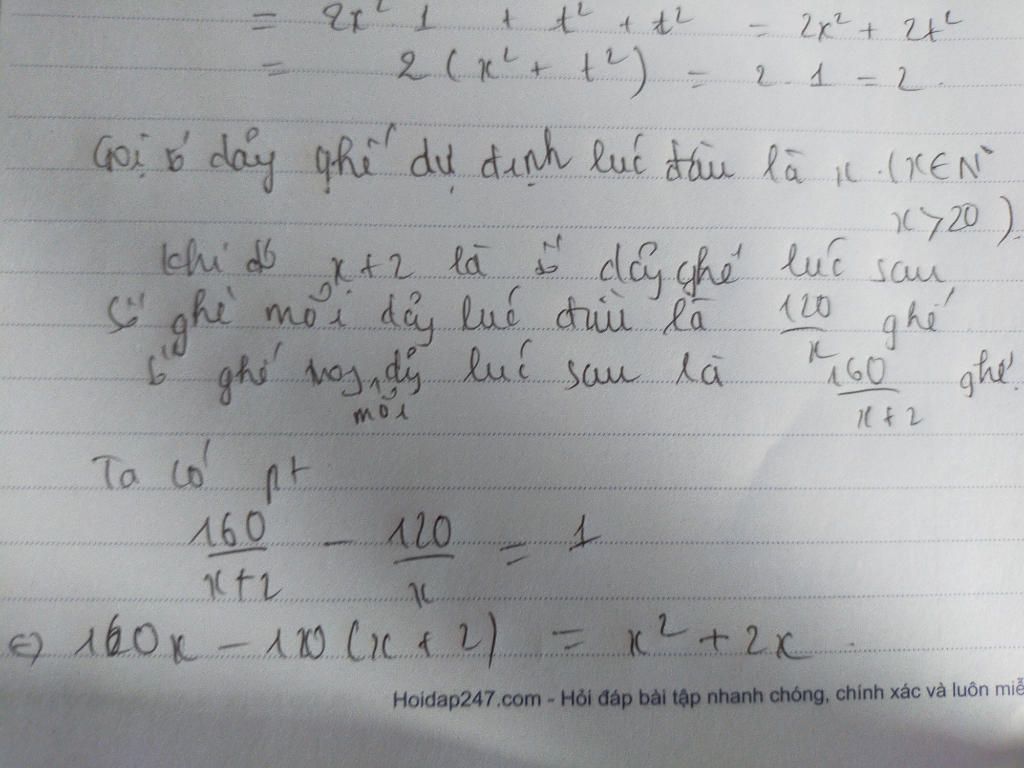 = 2x² 1 + t² + t² = 2x² + 2t²
= 2 (x² + t²) = 2 . 1 = 2.
Gọi số dãy ghế dự định lúc đầu là x. (x∈N*
x>20).
khi đó x+2 là số dãy ghế lúc sau
Số ghế mỗi dãy lúc đầu là 120/x ghế
số ghế mỗi dãy lúc sau là 160/x+2 ghế.
Ta có pt
160/x+2 - 120/x = 1
⇔ 160x - 120(x + 2) = x² + 2x.
Hoidap247.com - Hỏi đáp bài tập nhanh chóng, chính xác và luôn miễ